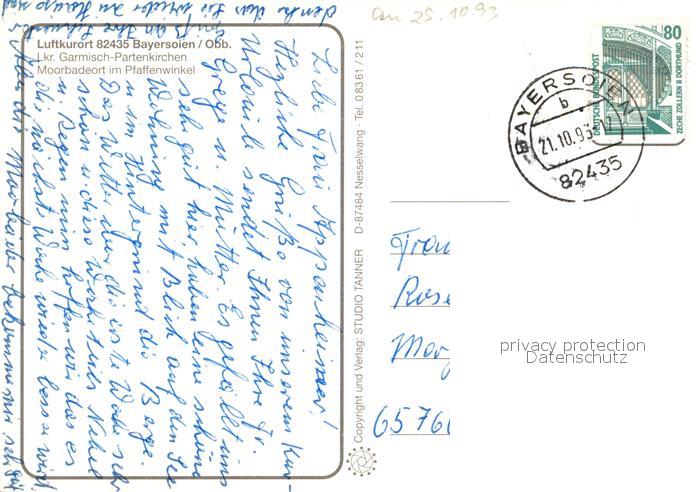 an 25.10.93
Luftkurort 82435 Bayersoien / Obb.
Lkr. Garmisch-Partenkirchen
Moorbadeort im Pfaffenwinkel
Liebe Frau Appenheimer!
Herzliche Grüße von unserem Kur-
Urlaub sendet Ihnen Ihre Fr.
u. Mutter. Es gefällt uns
sehr gut hier, haben eine schöne
Wohnung mit Blick auf den See
u. im Hintergrund die Berge.
Das Wetter war die erste Woche sehr
schön u. diese Woche Nebel
u. Regen nun hoffen wir das es
die nächste Woche wieder besser wird.
Aber die Moorbäder bekommen mir sehr gut
denke das Sie wieder zu Hause sind
© Copyright und Verlag: STUDIO TANNER D-87484 Nesselwang · Tel. 0 83 61 / 2 11
80
DEUTSCHE BUNDESPOST
ZECHE ZOLLERN II DORTMUND
BAYERSOIEN
b
21.10.93
82435
Frau
Rose
6576
privacy protection
Datenschutz